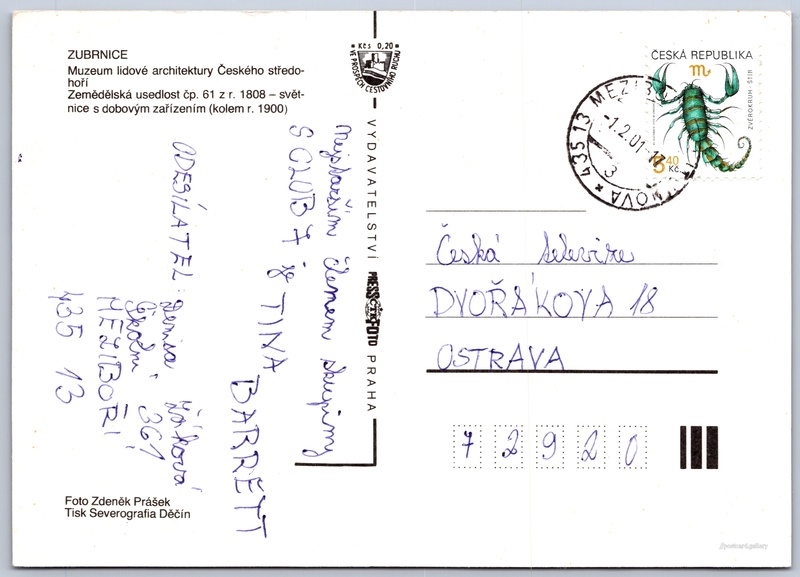 ZUBRNICE
Muzeum lidové architektury Českého středo-
hoří
Zemědělská usedlost čp. 61 z r. 1808 – svět-
nice s dobovým zařízením (kolem r. 1900)
Kčs 0,20
VE PROSPĚCH CESTOVNÍHO RUCHU
ČESKÁ REPUBLIKA
ZVĚROKRUH - ŠTÍR
5,40
Kč
435 13 MEZIB
NOVA
-1.2.01-17
3
Nejstarším členem skupiny
S CLUB 7 je TINA
BARRETT
ODESÍLATEL: Denisa Žáková
Školní 361
MEZIBOŘÍ
435 13
VYDAVATELSTVÍ PRESSFOTO PRAHA
ČTK
Česká televize
DVOŘÁKOVA 18
OSTRAVA
72920
Foto Zdeněk Prášek
Tisk Severografia Děčín